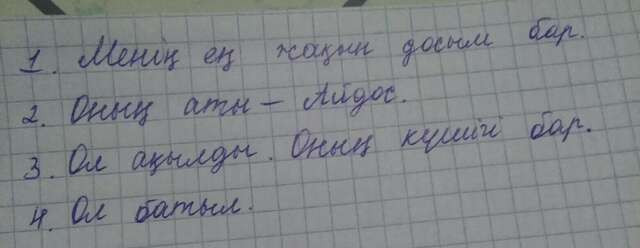 1. Менің ең жақын досым бар.
2. Оның аты – Айдос.
3. Ол ақылды. Оның күшігі бар.
4. Ол батыл.